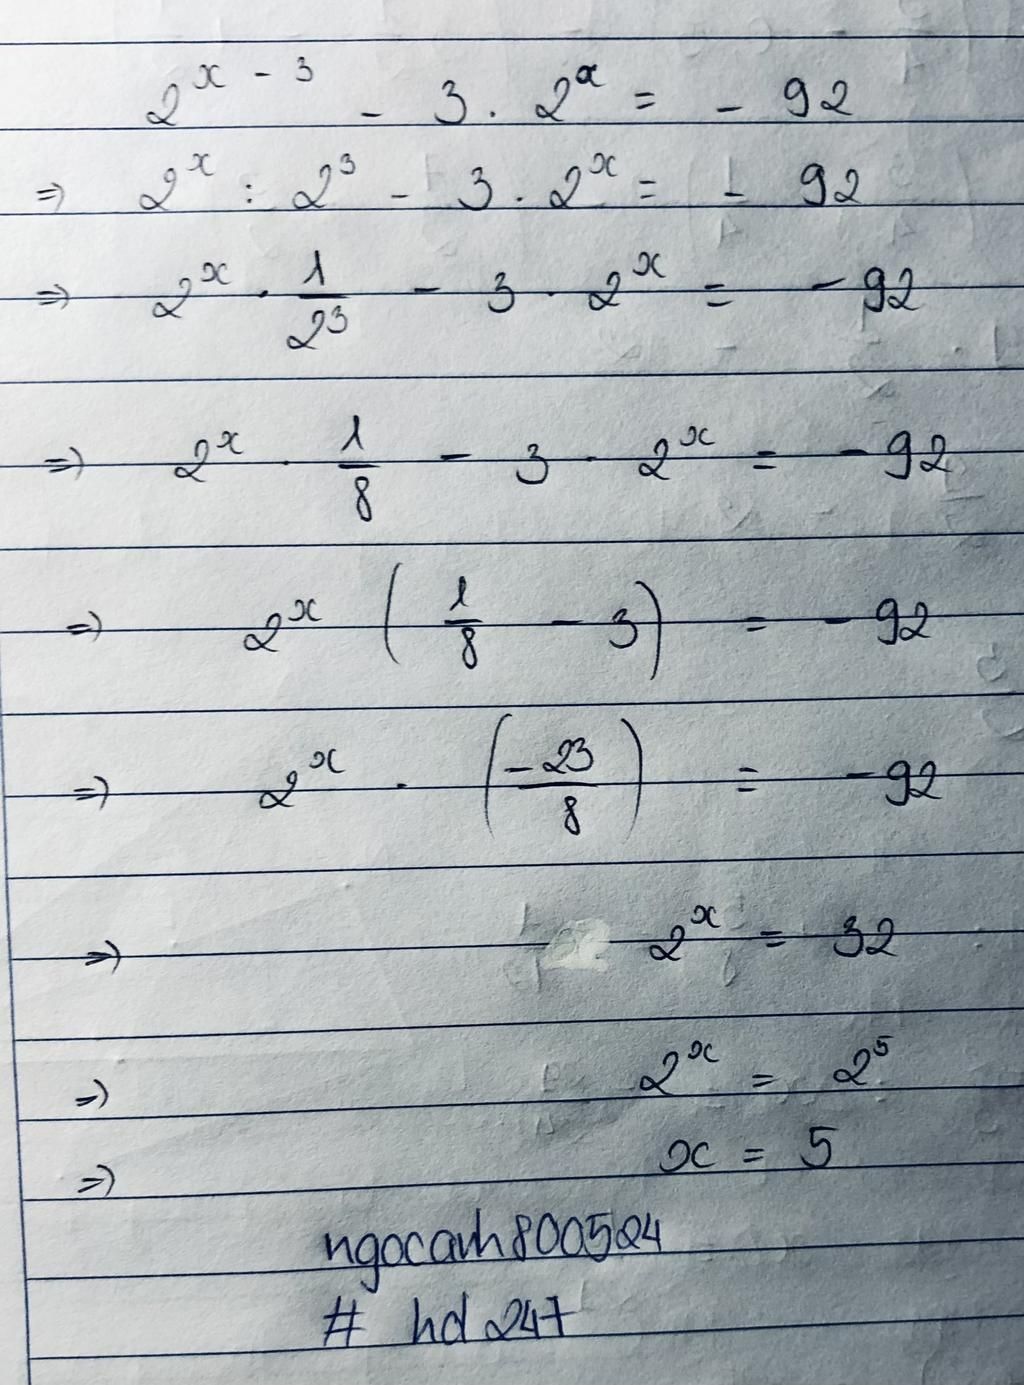 2^{x - 3} - 3 . 2^{x} = - 92
=> 2^{x} : 2^{3} - 3 . 2^{x} = - 92
=> 2^{x} . \frac{1}{2^{3}} - 3 . 2^{x} = - 92
=> 2^{x} . \frac{1}{8} - 3 . 2^{x} = - 92
=> 2^{x} ( \frac{1}{8} - 3 ) = - 92
=> 2^{x} . ( \frac{-23}{8} ) = - 92
=> 2^{x} = 32
=> 2^{x} = 2^{5}
=> x = 5
ngocanh800524
# hd 247